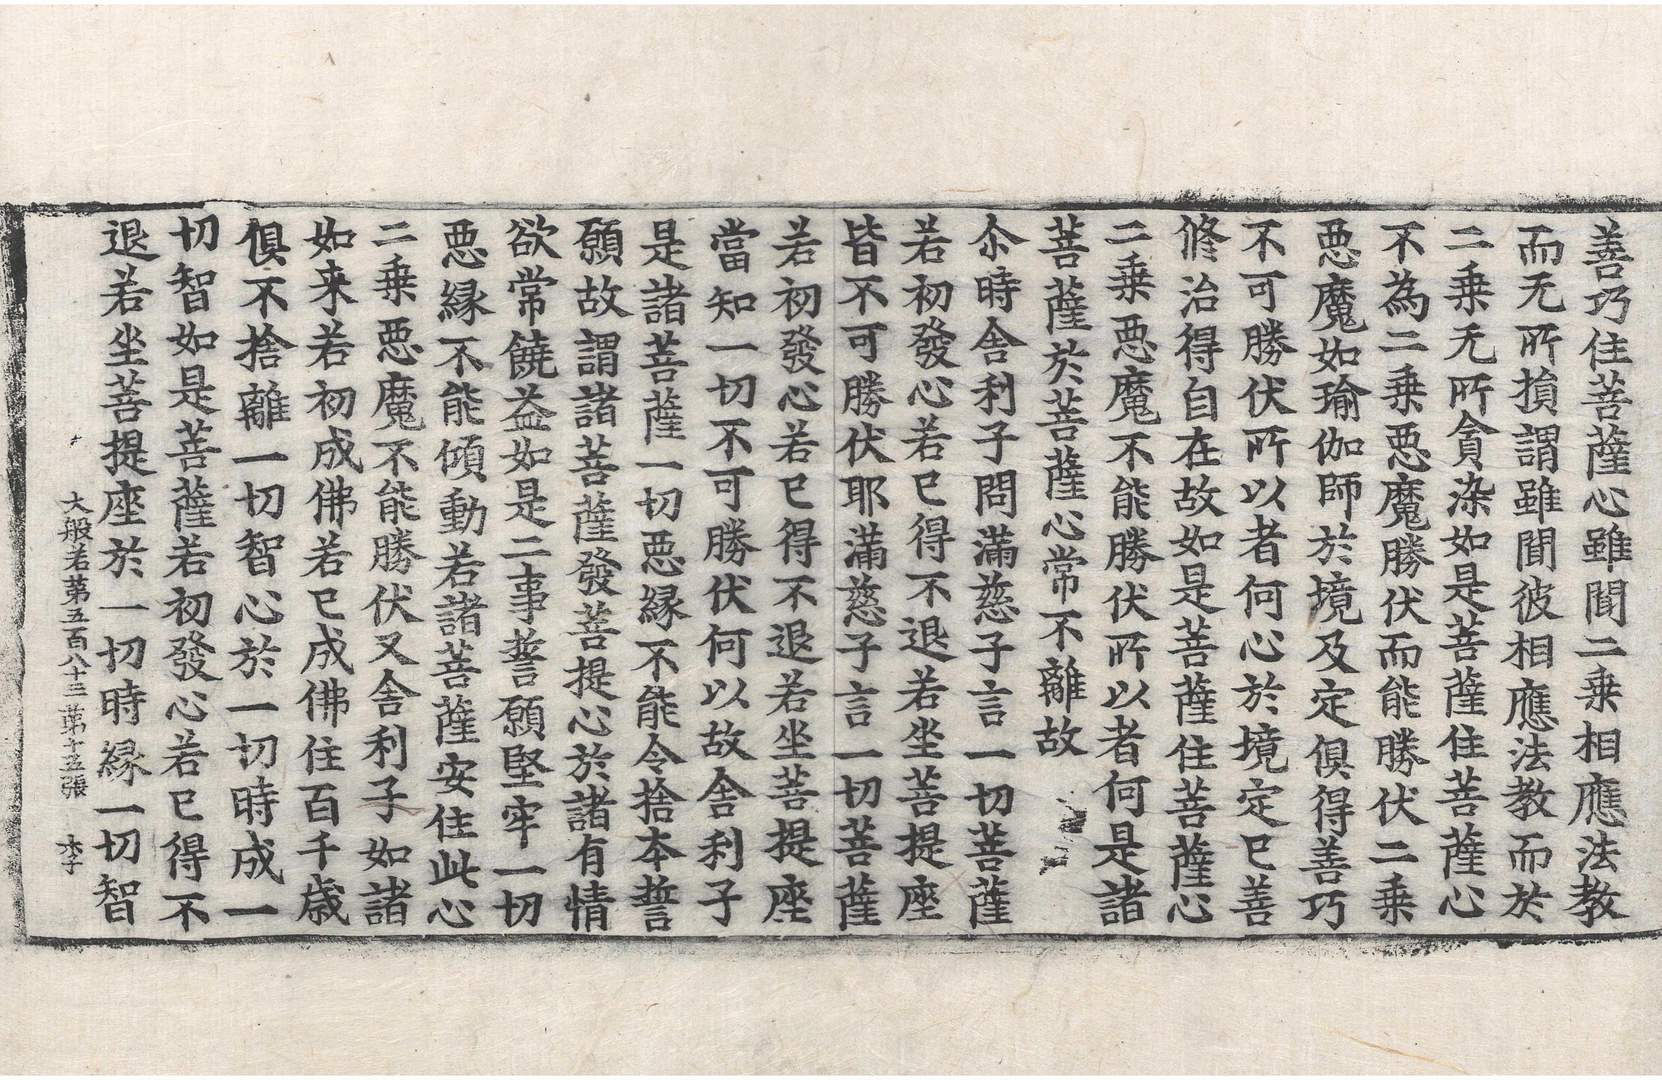 善巧住菩薩心雖聞二乗相應法教
而无所損謂雖聞彼相應法教而於
二乗无所貪染如是菩薩住菩薩心
不為二乗惡魔勝伏而能勝伏二乗
惡魔如瑜伽師於境及定俱得善巧
不可勝伏所以者何心於境定已善
修治得自在故如是菩薩住菩薩心
二乗惡魔不能勝伏所以者何是諸
菩薩於菩薩心常不離故
尒時舍利子問滿慈子言一切菩薩
若初發心若已得不退若坐菩提座
皆不可勝伏耶滿慈子言一切菩薩
若初發心若已得不退若坐菩提座
當知一切不可勝伏何以故舍利子
是諸菩薩一切惡縁不能令捨本誓
願故謂諸菩薩發菩提心於諸有情
欲常饒益如是二事誓願堅牢一切
惡縁不能傾動若諸菩薩安住此心
二乗惡魔不能勝伏又舍利子如諸
如来若初成佛若已成佛住百千歳
俱不捨離一切智心於一切時成一
切智如是菩薩若初發心若已得不
退若坐菩提座於一切時縁一切智
大般若苐五百八十三 苐十五張 木子